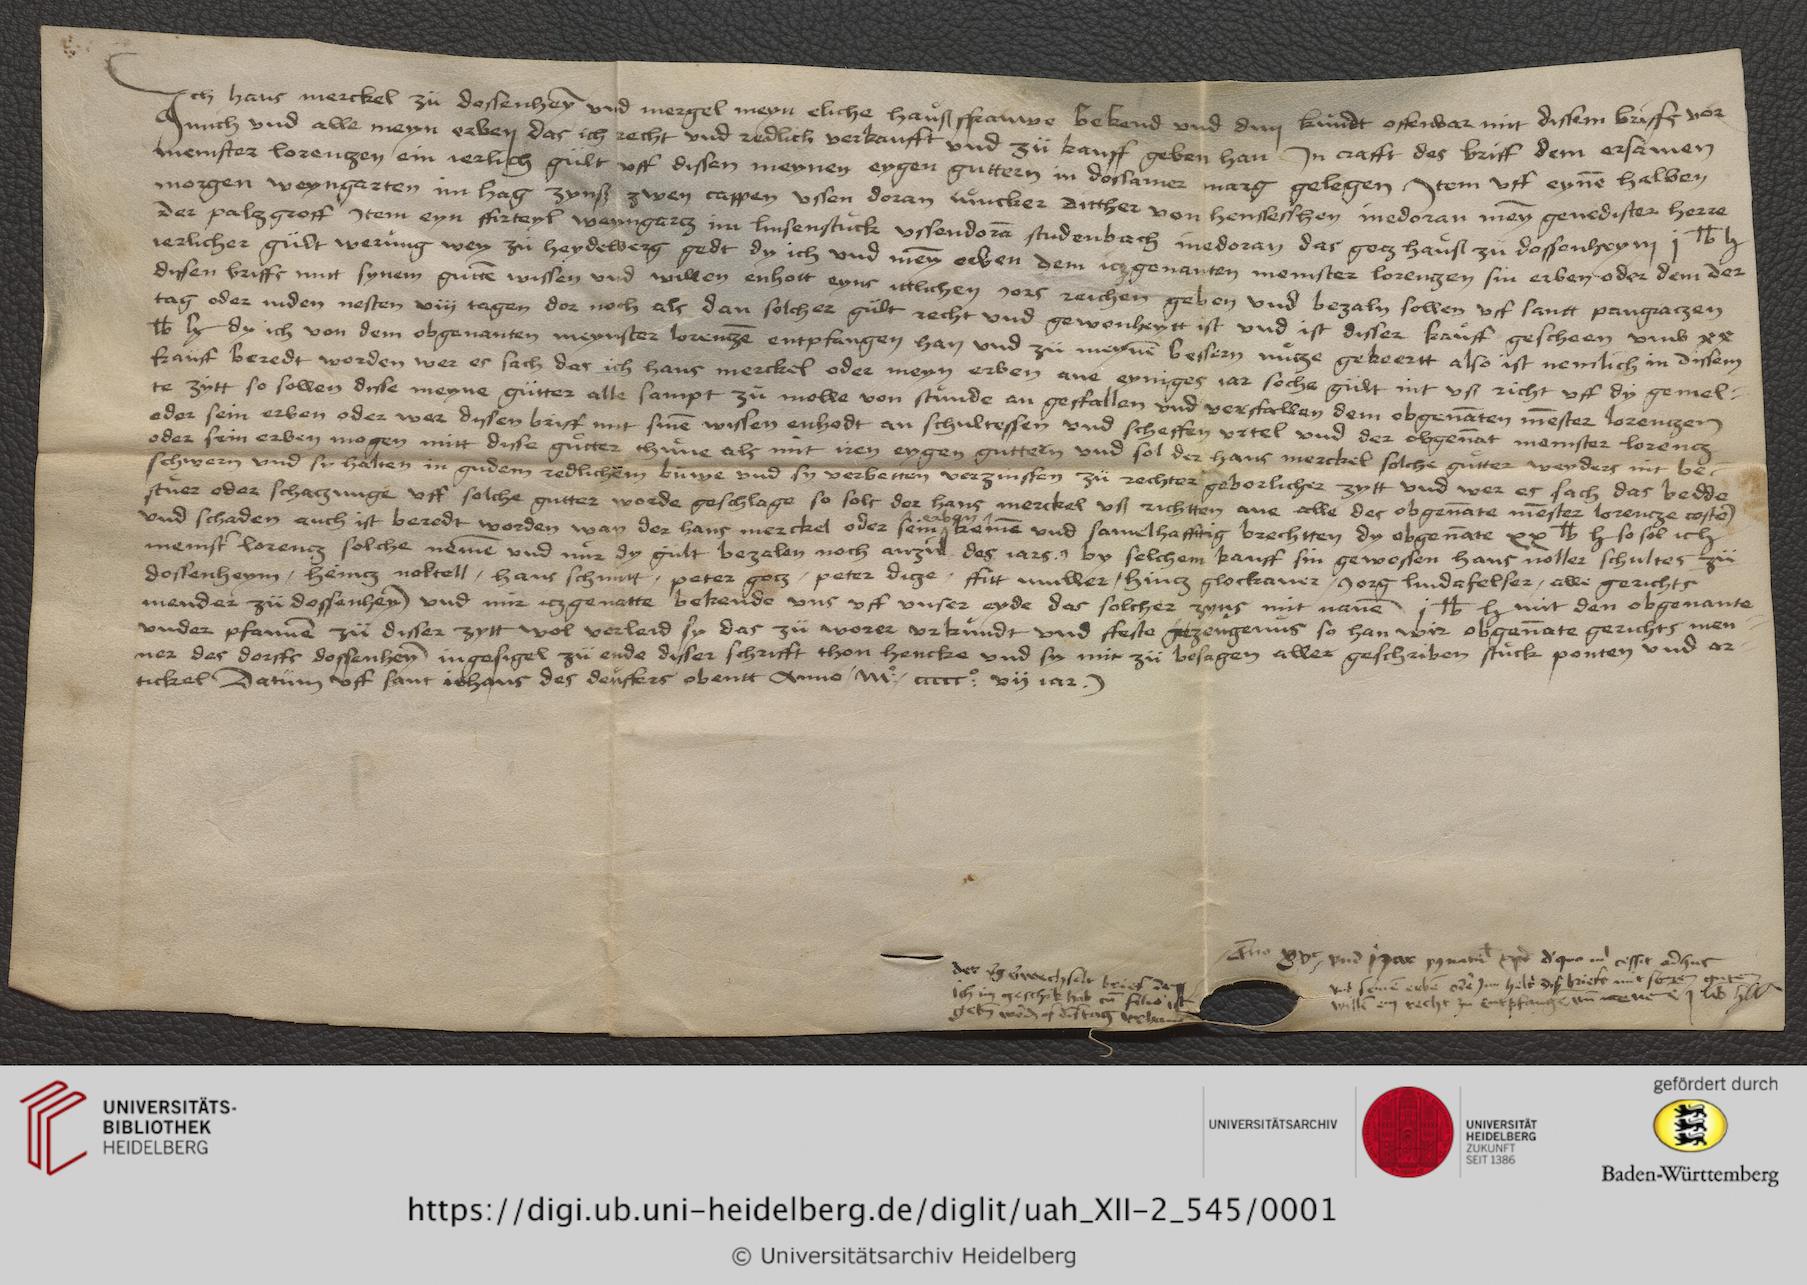 Ich hans merckel zü dossenheÿ vnd mergel meyn eliche haußffrauwe bekend vnd dun kündt offenbar mit dissem briffe vor
vnnch vnd alle meyn erben das ich recht vnd redlich verkaufft vnd zü kauff geben han In crafft des briff dem ersamen
meinster lorenczen ein ierlich gült vff dissen meynen eygen guttern in dossamer marg gelegen Item vff eyne halben
morgen weyngarten im hag zynß zwen cappen vssen doran iuncker ditther von henssesschen inedoran meÿ genedister herre
der palzgroff Item eyn ffirteyl weyngarcz im linsenstuck vssendora studenbach inedoran das gocz hauß zü dossenheym j lb h
ierlicher gült werüng wey zü heydelberg gedt dy ich vnd meÿ erben dem iczgenanten meinster lorenczen sin erben oder dem der
dissen briffs mit synem gutte wissen vnd willen enhott eyns ittlichen iors reichen geben vnd bezaln sollen vff santt pangraczen
tag oder inden nesten viij tagen dor noch als dan solcher gült recht vnd gewonheytt ist vnd ist disser kauff gescheen vmb xx
lb h dy ich von dem obgenanten meynster lorencze entpfangen han vnd zü meyne bessern nücze gekeertt also ist nemlich in dissem
kauff beredt worden wer es sach das ich hans merckel oder meyn erben ane eyniges iar soche gült nit vß richt vff dy gemel-
te zytt so sollen disse meyne gütter alle sampt zü molle von stünde an gesfallen vnd versfallen dem obgenaten mester lorenczen
oder sein erben oder wer dissen briff mit sine wissen enhodt an schultessen vnd scheffen vrtel vnd der obgenat meinster lorencz
oder sein erben mogen mitt disse gutter thüne als mit iren eygen guttern vnd sol der hans merckel solche gutter weyders nit be-
schwern vnd sy halten in gudem redlichem buwe vnd sy verbetten verzinssen zü rechter geborlicher zytt vnd wer es sach das bedde
stüer oder schaczunge vff solche gutter worde geschlage so sols der hans merckel vß richtten ane alle des obgenate mester lorencze coste
vnd schaden auch ist beredt worden wan der hans merckel oder sein erben keme vnd samelhafftig brechtten dy obgenate xx lb h so sol ich
meinst lorencz solche neme vnd mir dy gult bezalen noch anzil des iars by selchem kauff sin gewessen hans noller schultes zü
dossenheym / heincz noktell / hans schmitt / peter gocz / peter dicze / ffitt muller / hincz glockaner / iorg lindafelser / alle gerichts
mender zü dossenheÿ vnd mir iczgenatte bekende vns vff vnser eyde das solcher zyns mit name j lb h mit den obgenante
vnder pfanne zü disser zytt wol verleid sy das zü worer vrkundt vnd ffeste gezeugenus so han wir obgenate gerichts men-
ner des dorffs dossenheÿ ingesigel zü ende disser schrifft thon hencke vnd sy mit zü besagen aller geschriben stuck ponten vnd ar-
tickel Datüm vff sant iohans des deuffers obentt Anno / M° / ccccc° vij iar
der brieff
ich im geschikt hab
UNIVERSITÄTS-
BIBLIOTHEK
HEIDELBERG
UNIVERSITÄTSARCHIV
UNIVERSITÄT
HEIDELBERG
ZUKUNFT
SEIT 1386
gefördert durch
Baden-Württemberg
https://digi.ub.uni-heidelberg.de/diglit/uah_XII-2_545/0001
© Universitätsarchiv Heidelberg